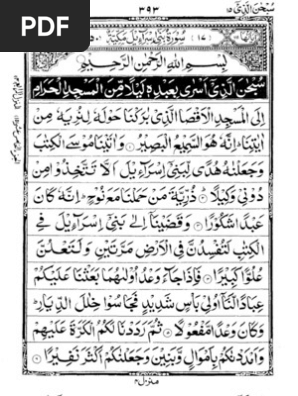 PDF
سُبْحٰنَ الَّذِيْ ١٥
٣٩٣
(١٧) سُوْرَةُ بَنِيْٓ اِسْرَآءِيْلَ مَكِّيَّةٌ (٥٠)
بِسْمِ اللّٰهِ الرَّحْمٰنِ الرَّحِيْمِ
سُبْحٰنَ الَّذِيْٓ اَسْرٰى بِعَبْدِهٖ لَيْلًا مِّنَ الْمَسْجِدِ الْحَرَامِ
اِلَى الْمَسْجِدِ الْاَقْصَا الَّذِيْ بٰرَكْنَا حَوْلَهٗ لِنُرِيَهٗ مِنْ
اٰيٰتِنَا ؕ اِنَّهٗ هُوَ السَّمِيْعُ الْبَصِيْرُ ۝ وَاٰتَيْنَا مُوْسَى الْكِتٰبَ
وَجَعَلْنٰهُ هُدًى لِّبَنِيْٓ اِسْرَآءِيْلَ اَلَّا تَتَّخِذُوْا مِنْ
دُوْنِيْ وَكِيْلًا ۝ ذُرِّيَّةَ مَنْ حَمَلْنَا مَعَ نُوْحٍ ؕ اِنَّهٗ كَانَ
عَبْدًا شَكُوْرًا ۝ وَقَضَيْنَآ اِلٰى بَنِيْٓ اِسْرَآءِيْلَ فِي
الْكِتٰبِ لَتُفْسِدُنَّ فِي الْاَرْضِ مَرَّتَيْنِ وَلَتَعْلُنَّ
عُلُوًّا كَبِيْرًا ۝ فَاِذَا جَآءَ وَعْدُ اُوْلٰىهُمَا بَعَثْنَا عَلَيْكُمْ
عِبَادًا لَّنَآ اُولِيْ بَاْسٍ شَدِيْدٍ فَجَاسُوْا خِلٰلَ الدِّيَارِ ؕ
وَكَانَ وَعْدًا مَّفْعُوْلًا ۝ ثُمَّ رَدَدْنَا لَكُمُ الْكَرَّةَ عَلَيْهِمْ
وَاَمْدَدْنٰكُمْ بِاَمْوَالٍ وَّبَنِيْنَ وَجَعَلْنٰكُمْ اَكْثَرَ نَفِيْرًا ۝
منزل ٤